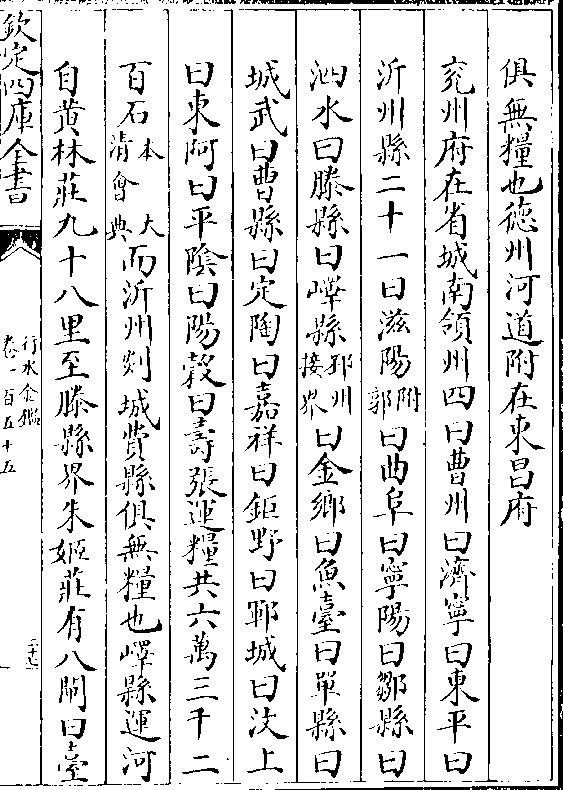 俱無糧也德州河道附在東昌府
兖州府在省城南領州四曰曹州曰濟寧曰東平曰
沂州縣二十一曰滋陽附郭曰曲阜曰寧陽曰鄒縣曰
泗水曰滕縣曰嶧縣邳州接界曰金鄉曰魚臺曰單縣曰
城武曰曹縣曰定陶曰嘉祥曰鉅野曰鄆城曰汶上
曰東阿曰平陰曰陽穀曰壽張運糧共六萬三千二
百石本大清會典而沂州郯城費縣俱無糧也嶧縣運河
自黄林莊九十八里至滕縣界朱姬莊有八閘曰臺
欽定四庫全書
行水金鑑
卷一百五十五
二十七